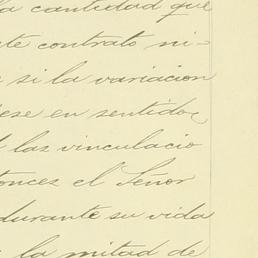 la cantidad que
este contrato ni=
si la variacion
ese en sentido
las vinculacio
tonces el Señor
durante su vida
la mitad de